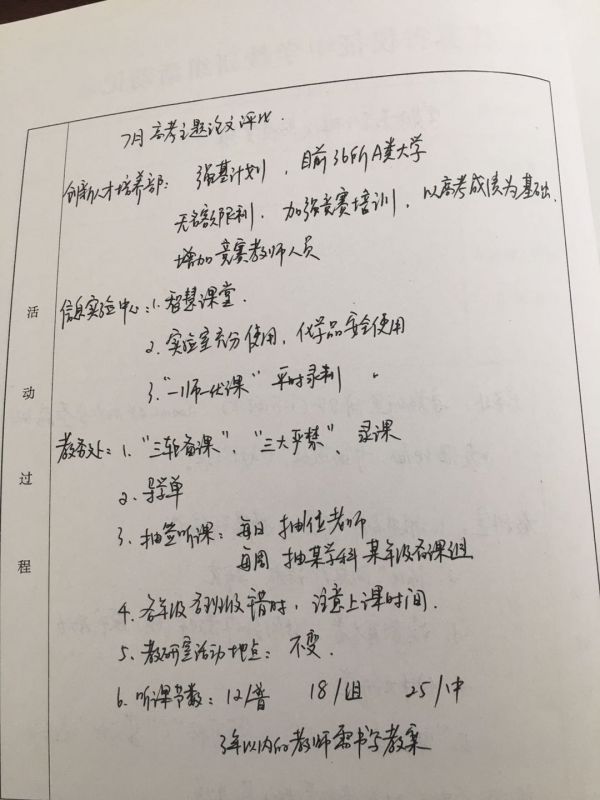 7月高考主题论文评比.
创新人才培养部: 强基计划, 目前36所A类大学
无名额限制, 加强竞赛培训, 以高考成绩为基础.
增加竞赛教师人员
信息实验中心: 1. 智慧课堂.
2. 实验室充分使用, 化学品安全使用
3. "一师一优课" 平时录制
教务处: 1. "三轮备课", "三大严禁", 录课
2. 导学单
3. 抽签听课: 每日 抽 位老师
每周 抽某学科某年级备课组
4. 各年级各班级错时, 注意上课时间.
5. 教研室活动地点: 不变.
6. 听课节数: 12/普 18/组 25/中
3年以内的教师需书写教案
活动过程